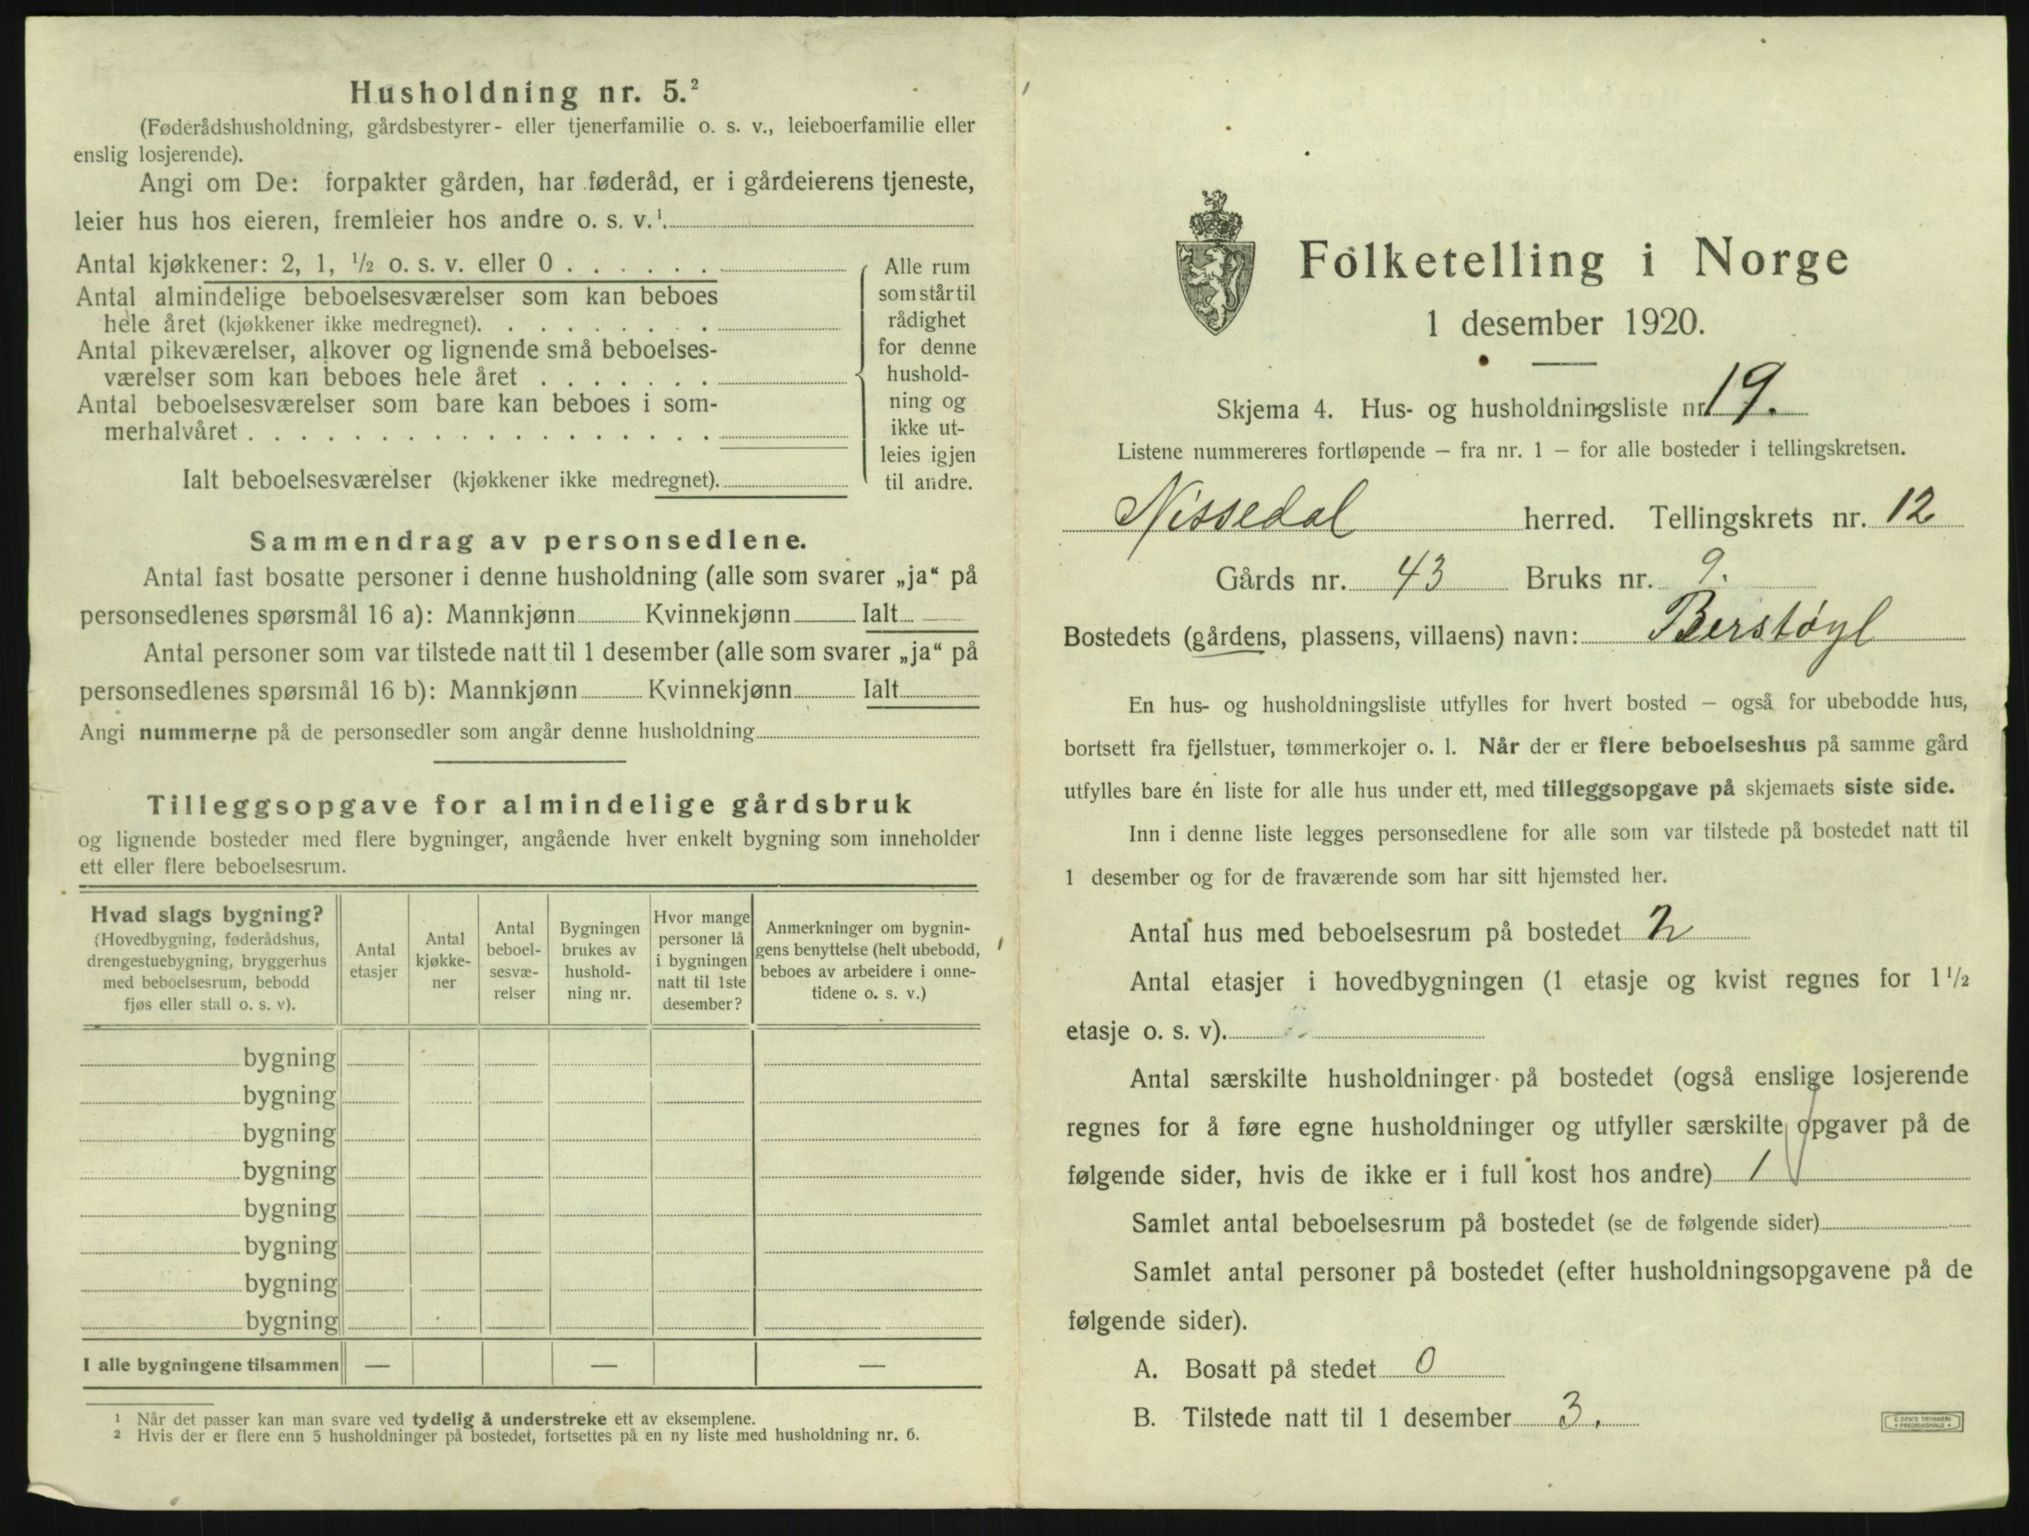 Husholdning nr. 5.²
(Føderådshusholdning, gårdsbestyrer- eller tjenerfamilie o. s. v., leieboerfamilie eller
enslig losjerende).
Angi om De: forpakter gården, har føderåd, er i gårdeierens tjeneste,
leier hus hos eieren, fremleier hos andre o. s. v.¹.
Antal kjøkkener: 2, 1, ½ o. s. v. eller 0 . . . . . .
Antal almindelige beboelsesværelser som kan beboes
hele året (kjøkkener ikke medregnet). . . . . . . .
Antal pikeværelser, alkover og lignende små beboelses-
værelser som kan beboes hele året . . . . . . .
Antal beboelsesværelser som bare kan beboes i som-
merhalvåret . . . . . . . . . . . . . . . . . .
Ialt beboelsesværelser (kjøkkener ikke medregnet).
Alle rum
som står til
rådighet
for denne
hushold-
ning og
ikke ut-
leies igjen
til andre.
Sammendrag av personsedlene.
Antal fast bosatte personer i denne husholdning (alle som svarer „ja“ på
personsedlenes spørsmål 16 a): Mannkjønn Kvinnekjønn Ialt
Antal personer som var tilstede natt til 1 desember (alle som svarer „ja“ på
personsedlenes spørsmål 16 b): Mannkjønn Kvinnekjønn Ialt
Angi nummerne på de personsedler som angår denne husholdning
Tilleggsopgave for almindelige gårdsbruk
og lignende bosteder med flere bygninger, angående hver enkelt bygning som inneholder
ett eller flere beboelsesrum.
Hvad slags bygning?
(Hovedbygning, føderådshus,
drengestuebygning, bryggerhus
med beboelsesrum, bebodd
fjøs eller stall o. s. v).
Antal
etasjer
Antal
kjøkke-
ner
Antal
beboel-
sesvæ-
relser
Bygningen
brukes av
hushold-
ning nr.
Hvor mange
personer lå
i bygningen
natt til 1ste
desember?
Anmerkninger om bygnin-
gens benyttelse (helt ubebodd,
beboes av arbeidere i onne-
tidene o. s. v.)
bygning
bygning
bygning
bygning
bygning
bygning
bygning
bygning
I alle bygningene tilsammen — — —
¹ Når det passer kan man svare ved tydelig å understreke ett av eksemplene.
² Hvis der er flere enn 5 husholdninger på bostedet, fortsettes på en ny liste med husholdning nr. 6.
Folketelling i Norge
1 desember 1920.
Skjema 4. Hus- og husholdningsliste nr. 19.
Listene nummereres fortløpende — fra nr. 1 — for alle bosteder i tellingskretsen.
Nissedal herred. Tellingskrets nr. 12
Gårds nr. 43 Bruks nr. 9.
Bostedets (gårdens, plassens, villaens) navn: Berstøyl
En hus- og husholdningsliste utfylles for hvert bosted — også for ubebodde hus,
bortsett fra fjellstuer, tømmerkojer o. l. Når der er flere beboelseshus på samme gård
utfylles bare én liste for alle hus under ett, med tilleggsopgave på skjemaets siste side.
Inn i denne liste legges personsedlene for alle som var tilstede på bostedet natt til
1 desember og for de fraværende som har sitt hjemsted her.
Antal hus med beboelsesrum på bostedet 2
Antal etasjer i hovedbygningen (1 etasje og kvist regnes for 1½
etasje o. s. v).
Antal særskilte husholdninger på bostedet (også enslige losjerende
regnes for å føre egne husholdninger og utfyller særskilte opgaver på de
følgende sider, hvis de ikke er i full kost hos andre) 1
Samlet antal beboelsesrum på bostedet (se de følgende sider)
Samlet antal personer på bostedet (efter husholdningsopgavene på de
følgende sider).
A. Bosatt på stedet 0
B. Tilstede natt til 1 desember 3.